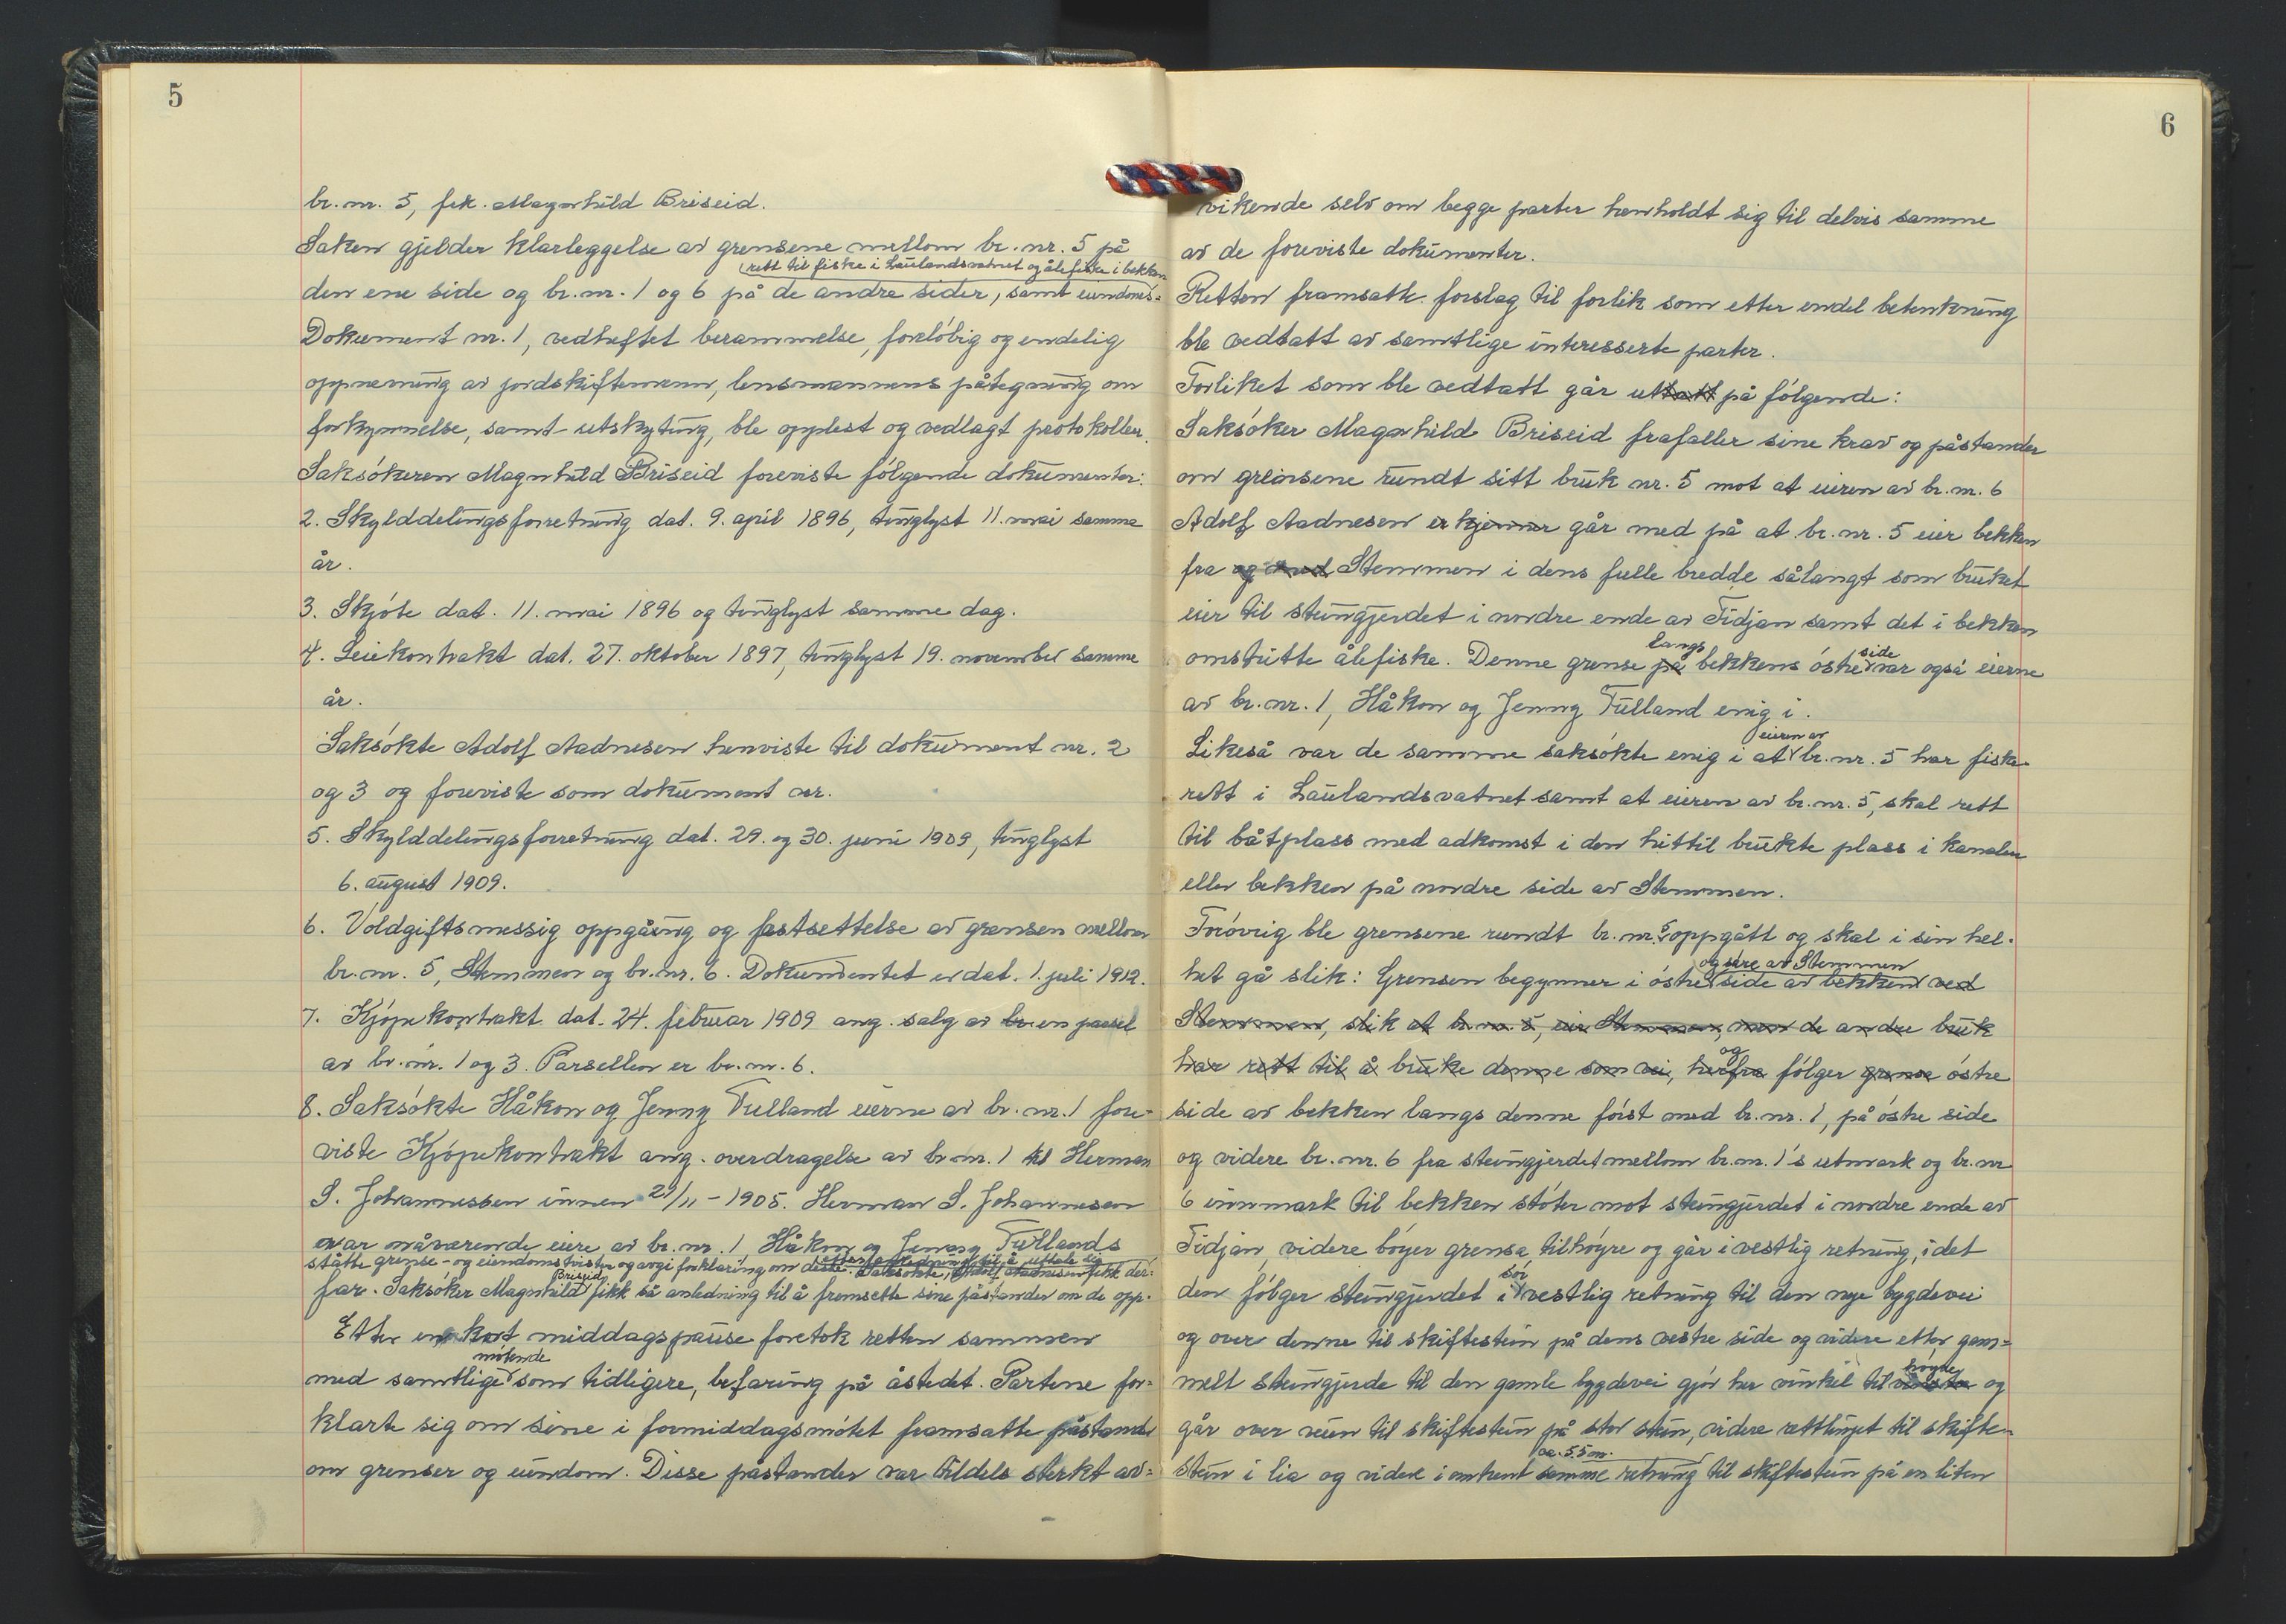 5
br. nr. 5, frk. Magnhild Briseid.
Saken gjelder klarleggelse av grensene mellom br. nr. 5 på
rett til fiske i Laulandsvatnet og ålefiske i bekken
den ene side og br. nr. 1 og 6 på de andre sider, samt eiendoms=
Dokument nr. 1, vedheftet berammelse, foreløbig og endelig
oppnevning av jordskiftemenn, lensmannens påtegning om
forkynnelse, samt utskyting, ble opplest og vedlagt protokollen.
Saksøkeren Magnhild Briseid foreviste følgende dokumenter:
2. Skylddelingsforretning dat. 9. april 1896, tinglyst 11. mai samme
år.
3. Skjøte dat. 11. mai 1896 og tinglyst samme dag.
4. Leiekontrakt dat. 27. oktober 1897, tinglyst 19. november samme
år.
Saksøkte Adolf Aadnesen henviste til dokument nr. 2
og 3 og foreviste som dokument nr.
5. Skylddelingsforretning dat. 29. og 30. juni 1909, tinglyst
6. august 1909.
6. Voldgiftsmessig oppgåing og fastsettelse av grensen mellom
br. nr. 5, Stemmen og br. nr. 6. Dokumentet er dat. 1. juli 1912.
7. Kjøpekontrakt dat. 24. februar 1909 ang. salg av br en parsel
av br. nr. 1 og 3. Parsellen er br. nr. 6.
8. Saksøkte Håkon og Jenny Tulland eierne av br. nr. 1 fore=
viste Kjøpekontrakt ang. overdragelse av br. nr. 1 til Herman
S. Johannessen innen 21/11 - 1905. Herman S. Johannesen
var nåværende eiere av br. nr. 1 Håkon og Jenny Tullands
ståtte grense- og eiendomstvister og avgi forklaring om disse. Saksøkte, Adolf Aadnesen fikk der=
etter anledning til å uttale sig
far. Saksøker Magnhild Briseid fikk så anledning til å fremsette sine påstander om de opp-
Etter en kort middagspause foretok retten sammen
med samtlige møtende som tidligere, befaring på åstedet. Partene for=
klarte sig om sine i formiddagsmøtet framsatte påstander
om grenser og eiendom. Disse påstander var tildels sterkt av=
6
vikende selv om begge parter henholdt sig til delvis samme
av de foreviste dokumenter.
Retten framsatte forslag til forlik som etter endel betenkning
ble vedtatt av samtlige interesserte parter.
Forliket som ble vedtatt går uttatt på følgende:
Saksøker Magnhild Briseid frafaller sine krav og påstander
om greinsene rundt sitt bruk nr. 5 mot at eieren av br. nr. 6
Adolf Aadnesen er kjenner går med på at br. nr. 5 eier bekken
fra og med Stemmen i dens fulle bredde sålangt som bruket
eier til steingjerdet i nordre ende av Tidjan samt det i bekken
omstritte ålefiske. Denne grense på langs bekkens østre side var også eierne
av br. nr. 1, Håkon og Jenny Tulland enig i.
Likeså var de samme saksøkte enig i at eieren av br. nr. 5 har fiske-
rett i Laulandsvatnet samt at eieren av br. nr. 5, skal rett
til båtplass med adkomst i den hittil brukte plass i kanalen
eller bekken på nordre side av Stemmen.
Forøvrig ble grensene rundt br. nr. 5 oppgått og skal i sin hel-
het gå slik: Grensen begynner i østre og søre av Stemmen side av bekken ved
Stemmen, slik at br. nr. 5, eier Stemmen, men de andre bruk
har rett til å bruke denne som vei, herfra og følger grensa østre
side av bekken langs denne først med br. nr. 1, på østre side
og videre br. nr. 6 fra steingjerdet mellom br. nr. 1's utmark og br. nr
6 innmark til bekken støter mot steingjerdet i nordre ende av
Tidjan, videre bøyer grensa tilhøyre og går i vestlig retning, idet
den følger steingjerdet i sør vestlig retning til den nye bygdevei
og over denne til skiftestein på dens vestre side og videre etter gam=
melt steingjerde til den gamle bygdevei gjør her vinkel til venstre høyre og
går over veien til skiftestein på stor stein, videre rettlinjet til skifte-
stein i lia og videre i omtrent samme retning ca. 5.5 m. til skiftestein på en liten